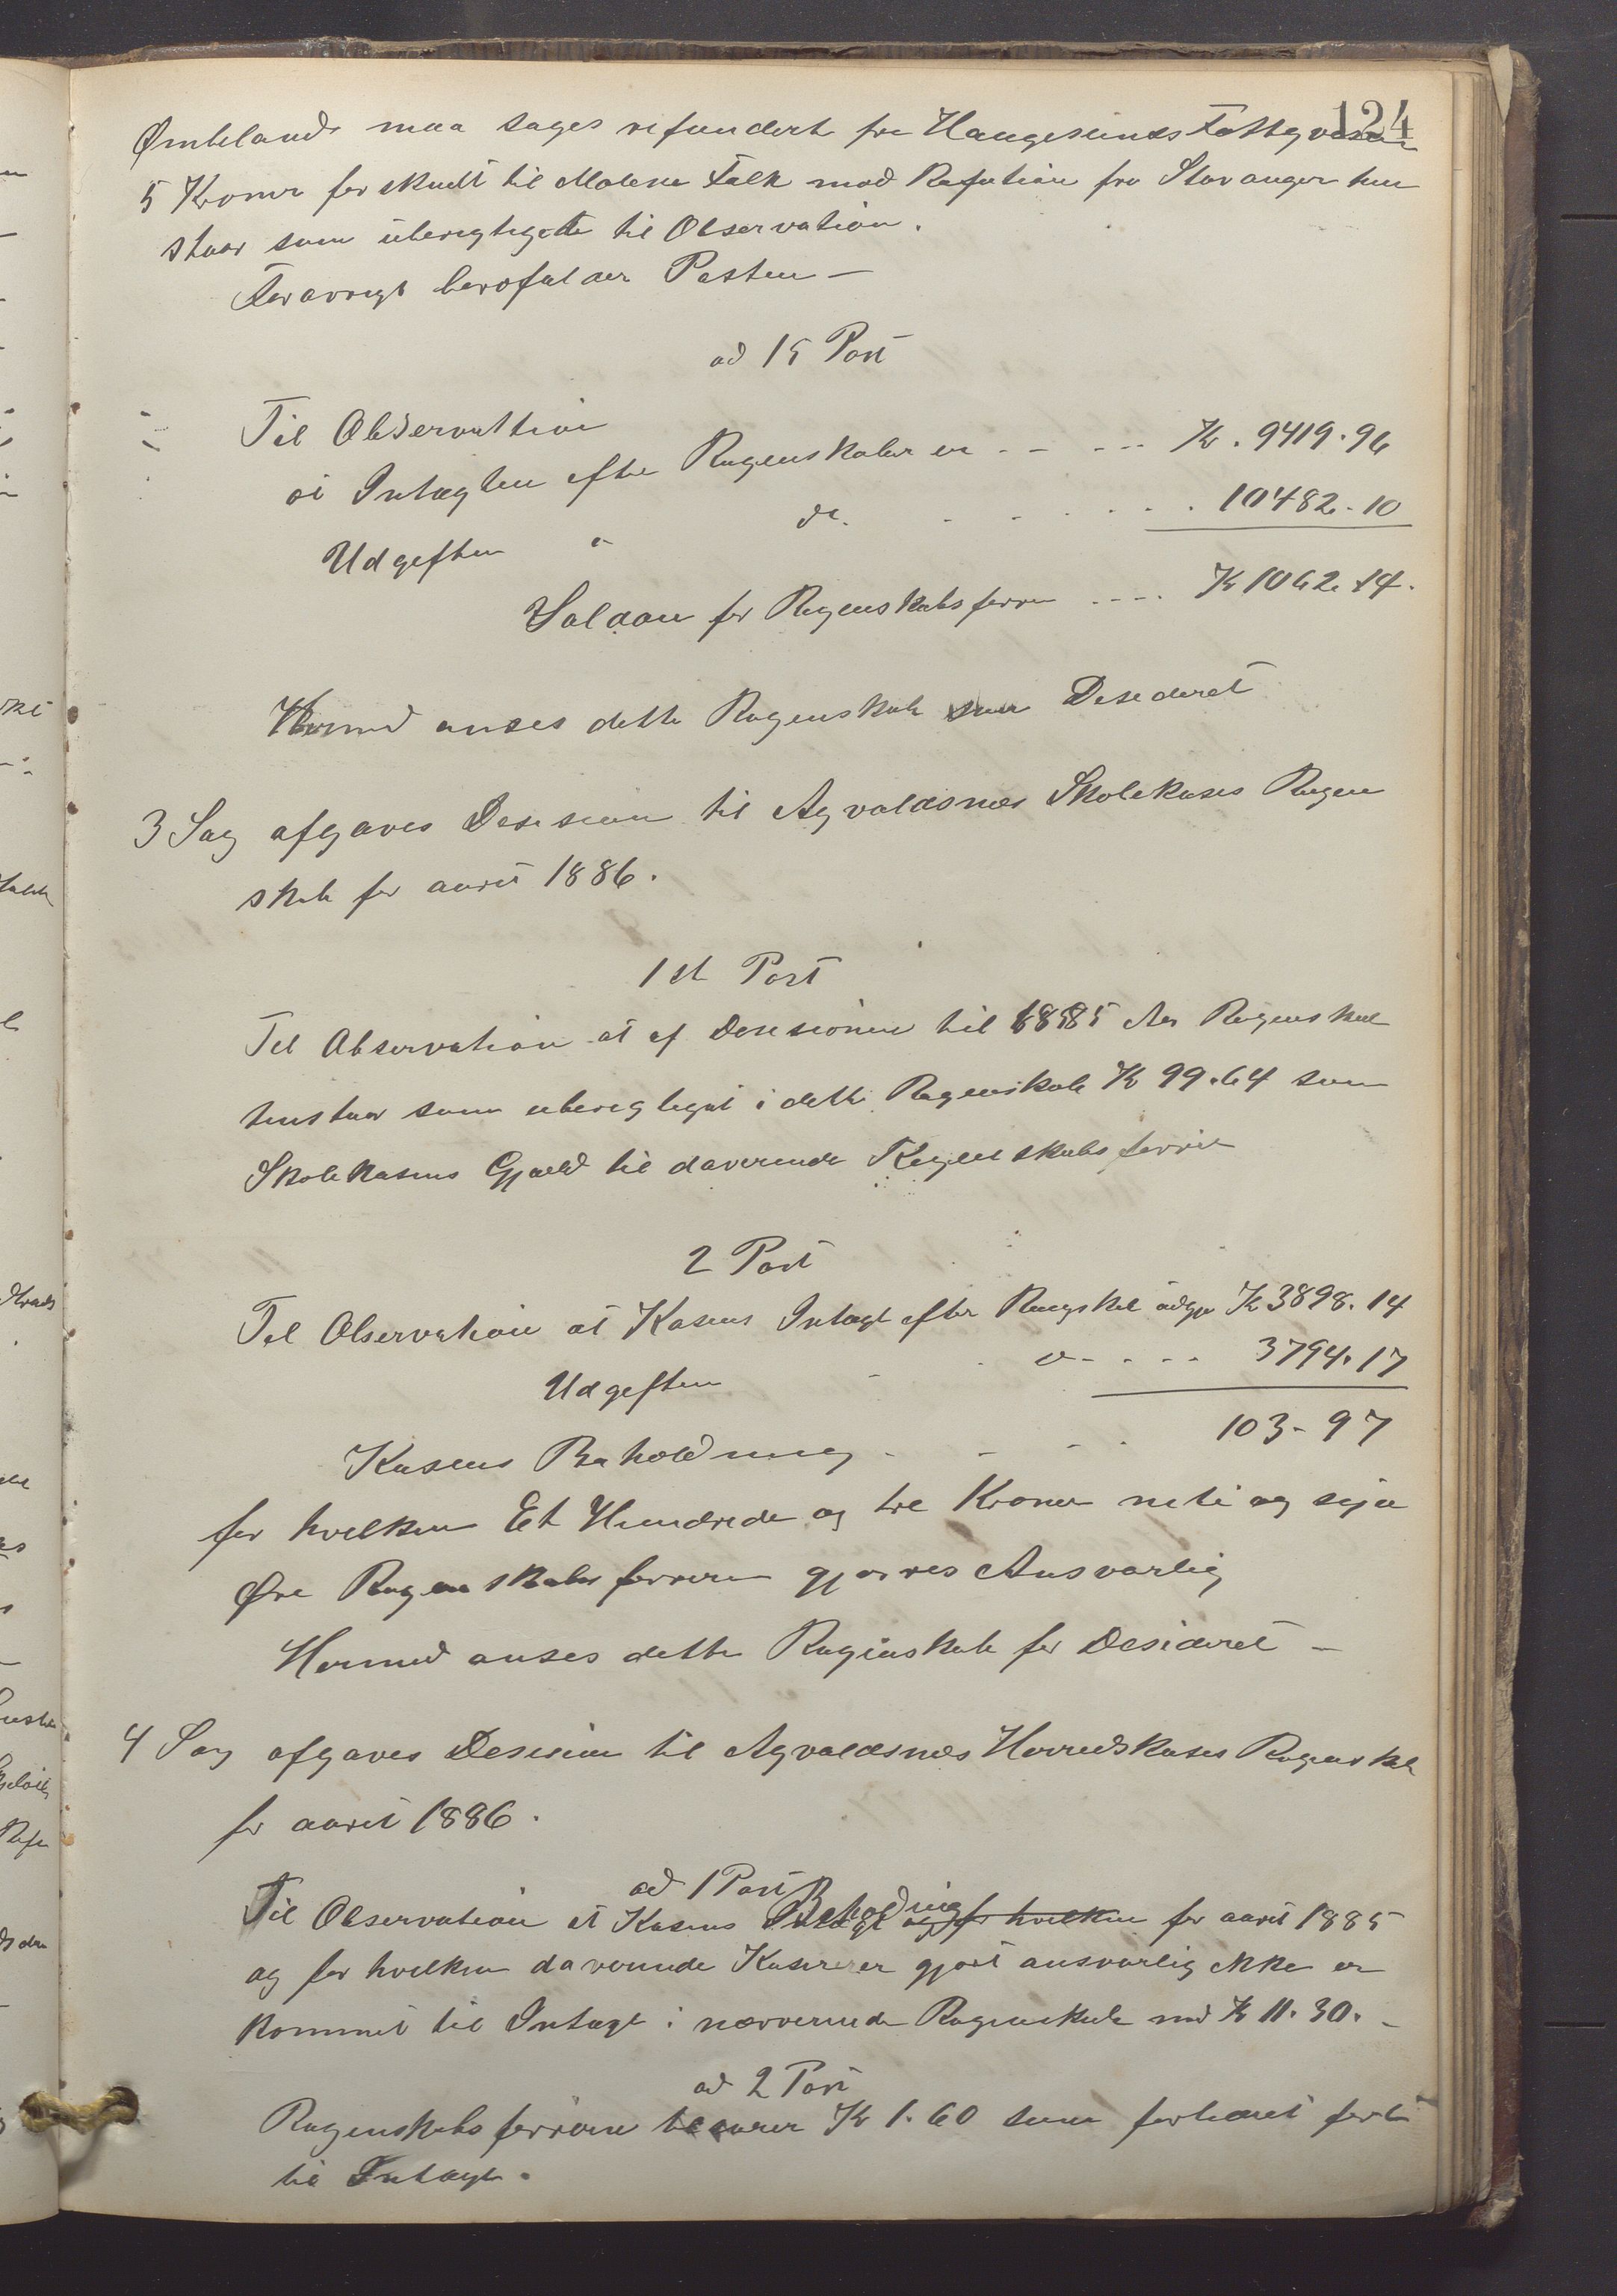 124
Ømbelands maa søges refundert fra Haugesunds Fattigvæsen
5 Kroner forskudt til Malene Falk mod Refution fra Stavanger hen
staar som uberegtigede til Observation.
Forøvrigt bortfalder Posten —
ad 15 Post
Til Observattion
at Intægten efter Regenskabet er - - - - - Kr. 9419.96
Udgeften " do. - - - - - - 10482.10
Saldoen for Regenskabsførren - - - - Kr 1062.14.
Hermed anses dette Regenskab som Desederet
3 Sag afgaves Desesion til Agvaldsnæs Skolekases Regen
skab for aaret 1886.
1ste Post
Til Observation at af Desesionen til 1885 Aars Regenskab
henstaar som uberegtiget i dette Regenskab Kr 99.64 som
Skolekasens Gjæld til daværende Regenskabsfører
2 Post
Til Observation at Kasens Intægt efter Regnskab udgjør Kr 3898.14
Udgeften - - do - - - - 3794.17
Kasens Beholdning - - - - 103-97
for hvelken Et Hundrede og tre Kroner niti og syv
Øre Regenskabsførreren gjøres Ansvarlig
Hermed anses dette Regenskab for Desideret —
4 Sag afgaves Desesion til Agvaldsnæs Herredskases Regenskab
for aaret 1886.
ad 1 Post
Beholdning
Til Observation at Kasens Intægt og for hvelken for aaret 1885
og for hvelken daværende Kaserer er gjort ansvarlig ekke er
kommet til Intægt i nærværende Regenskab med Kr 11.30. –
ad 2 Post
Regenskabsførreren Kr 1.60 som forlidet ført
til Intægt.